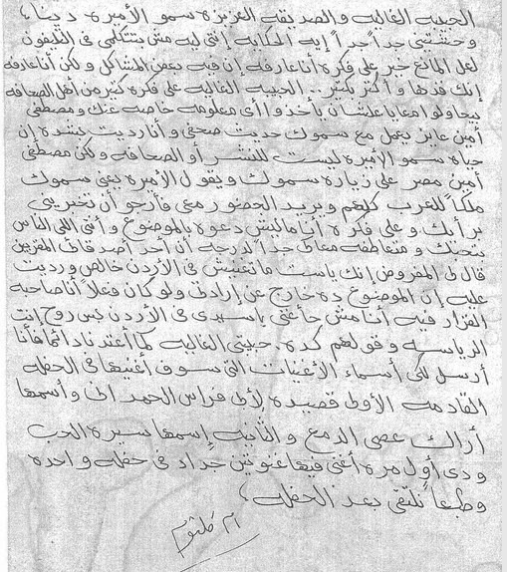 الحبيبه الغاليه والصديقه العزيزه سمو الأميره دينا،
وحشتني جداً جداً إيه الحكايه إنتي ليه مش بتتكلمي في التليفون
لعل المانع خير على فكره أنا عارفه إن فيه بعض المشاكل ولكن أنا عارفه
إنك قدها وأكثر بكثير.. الحبيبه الغاليه على فكره كثير من أهل الصحافه
بيحاولوا معايا علشان يأخذوا أي معلومه خاصه عنك ومصطفى
أمين عايز يعمل مع سموك حديث صحفي وأنا رديت بشده إن
حياة سمو الأميره ليست للنشر أو الصحافه ولكن مصطفى
أمين مصر على زيارة سموك ويقول الأميره يعني سموك
ملكاً للعرب كلهم ويريد الحضور معي فأرجو أن تخبريني
برأيك وعلى فكره أنا ماليش دعوه بالموضوع وأنتي اللي الناس
بتحبك ومتعاطفه معاكي جداً لدرجة أن أحد أصدقائي المقربين
قال لي المفروض إنك ياست ما تغنيش في الأردن خالص ورديت
عليه إن الموضوع ده خارج عن إرادتي ولو كان فعلاً أنا صاحبة
القرار فيه أنا مش حأغني ياسيدي في الأردن بس روح إنت
الرياسه وقولهم كده. حبيبتي الغاليه كما أعتدنا دائماً فأنا
أرسل لكي أسماء الأغنيات التي سوف أغنيها في الحفله
القادمه الأولى قصيدة لأبي فراس الحمداني وأسمها
أراك عصي الدمع والثانيه إسمها سيرة الحب
ودي أول مره أغني فيها غنوتين جداد في حفله واحده
وطبعاً نلتقي بعد الحفله،
أم كلثوم